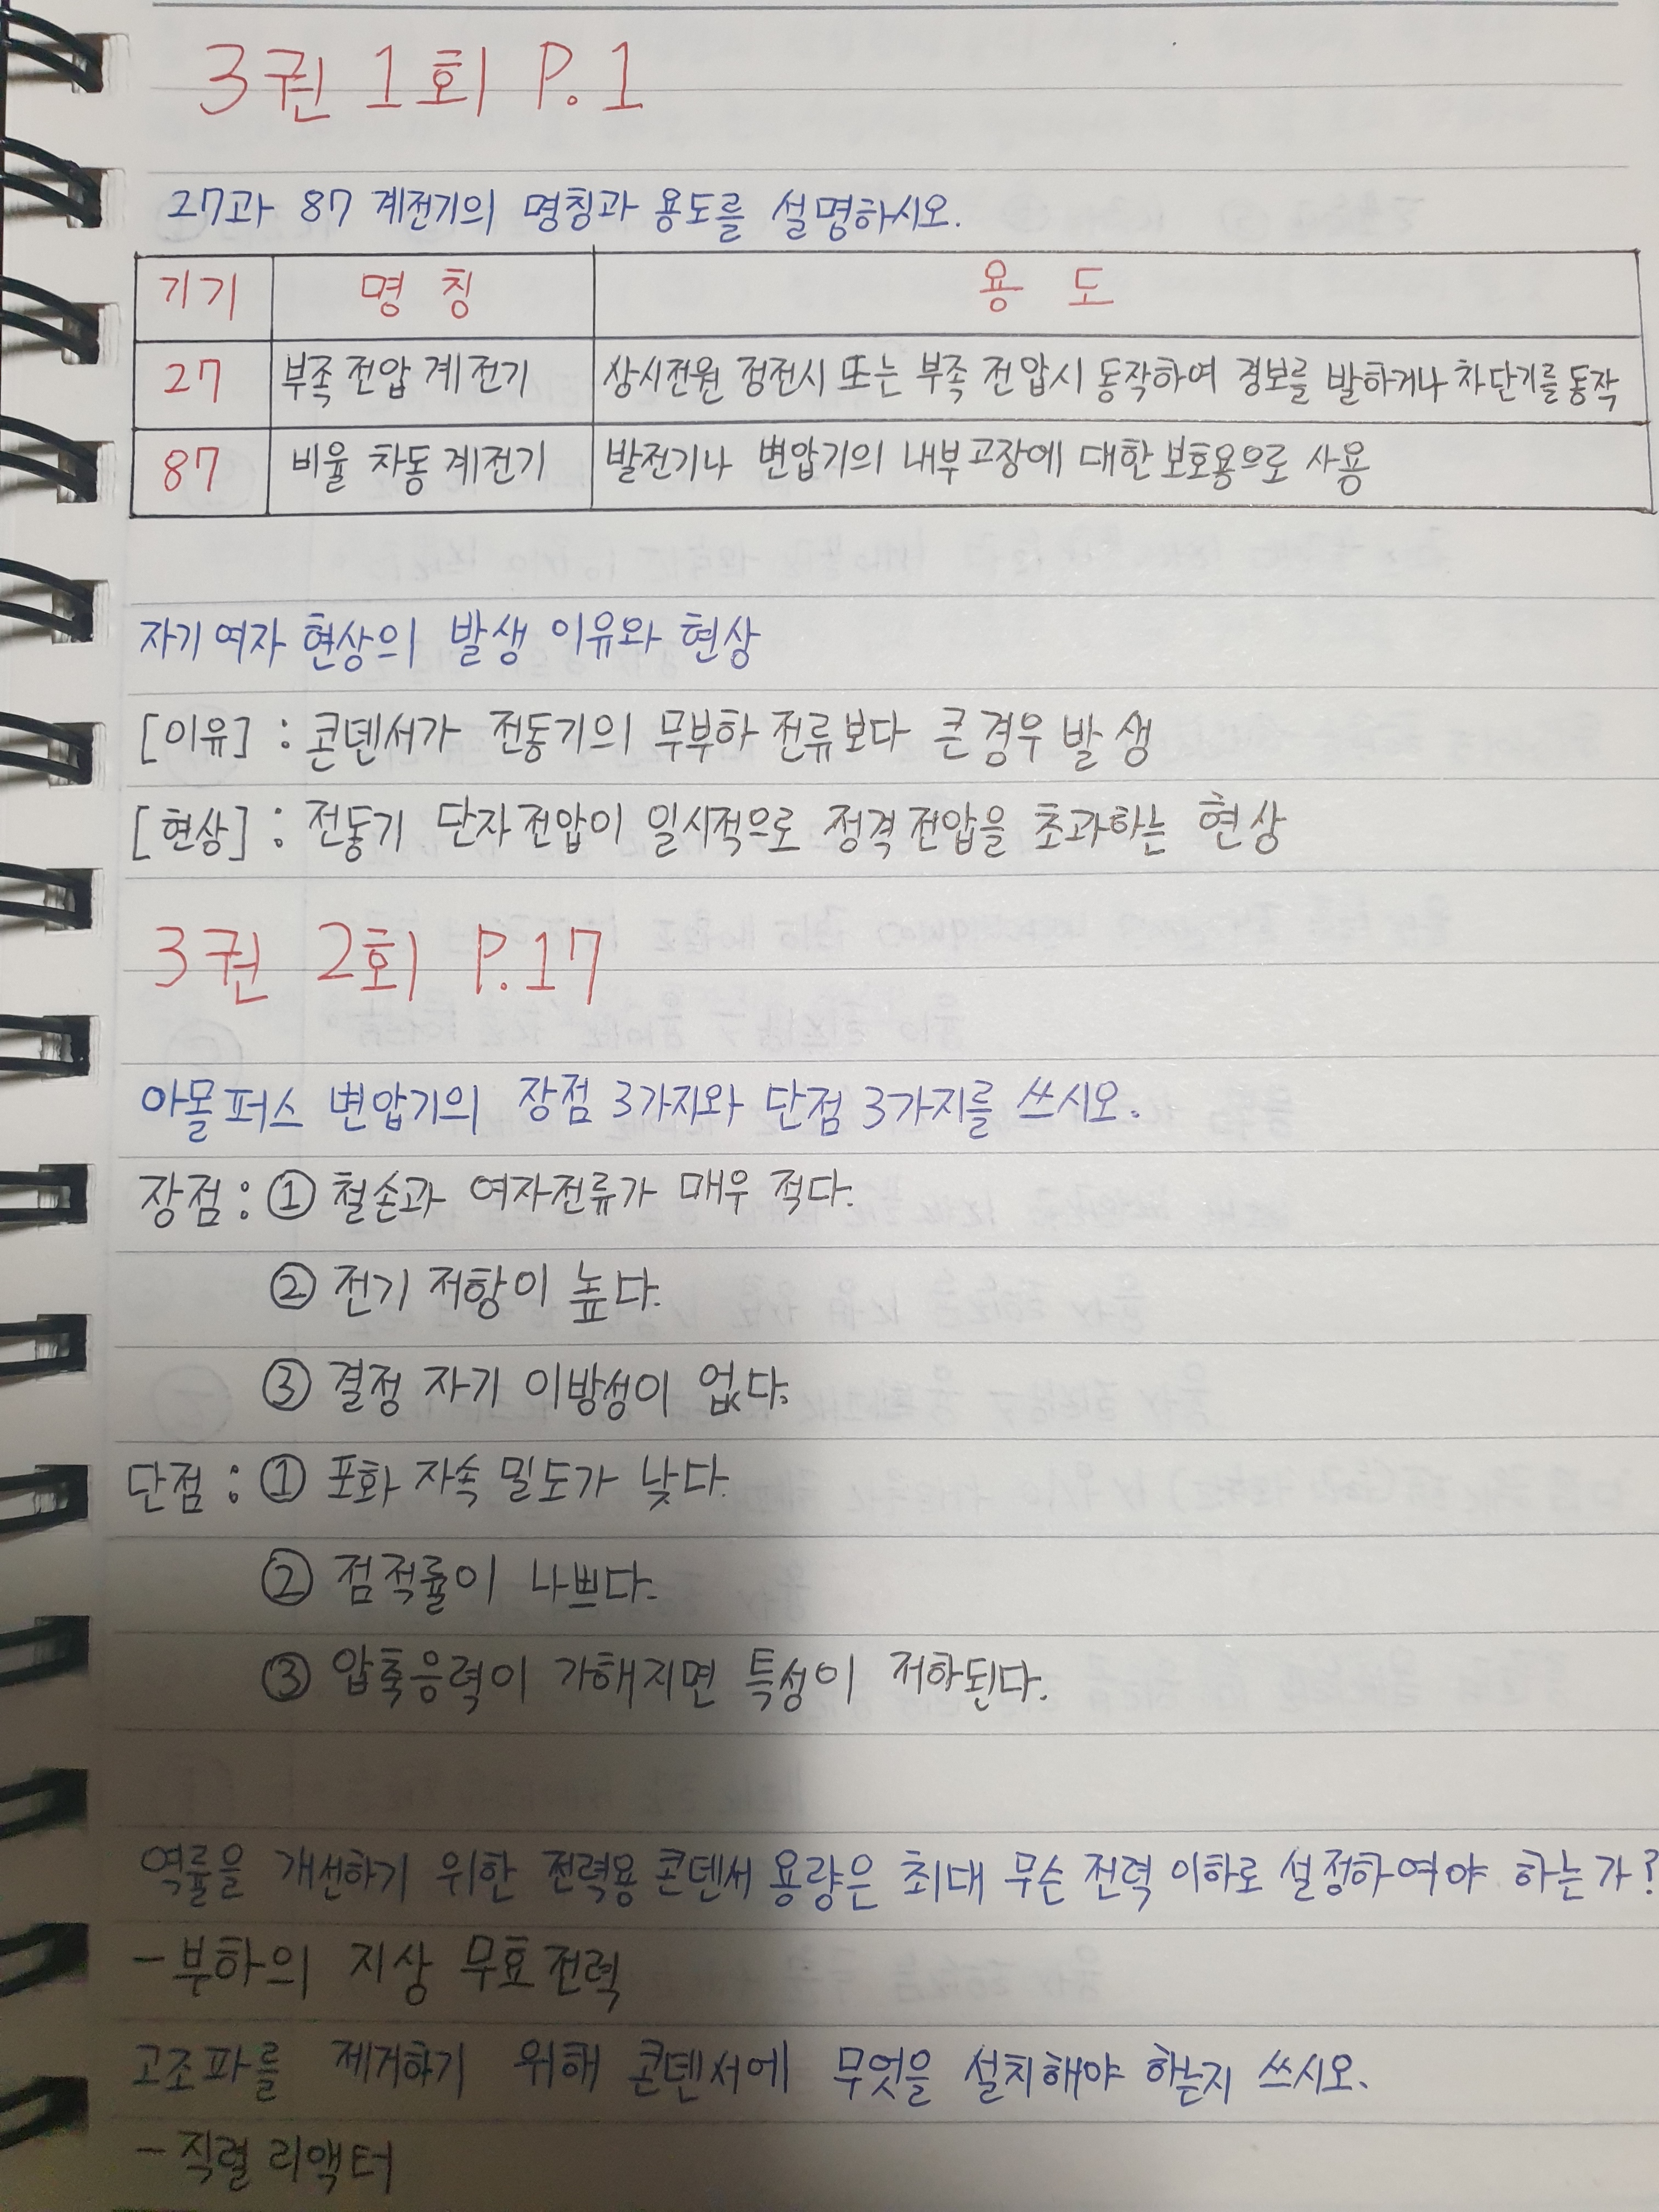 3권 1회 P.1
27과 87 계전기의 명칭과 용도를 설명하시오.
기기 명칭 용도
27 부족 전압 계전기 상시전원 정전시 또는 부족 전압시 동작하여 경보를 발하거나 차단기를 동작
87 비율 차동 계전기 발전기나 변압기의 내부고장에 대한 보호용으로 사용
자기여자 현상의 발생 이유와 현상
[이유] : 콘덴서가 전동기의 무부하 전류보다 큰 경우 발생
[현상] : 전동기 단자전압이 일시적으로 정격전압을 초과하는 현상
3권 2회 P.17
아몰퍼스 변압기의 장점 3가지와 단점 3가지를 쓰시오.
장점 : ① 철손과 여자전류가 매우 적다.
② 전기 저항이 높다.
③ 결정 자기 이방성이 없다.
단점 : ① 포화 자속 밀도가 낮다.
② 점적률이 나쁘다.
③ 압축응력이 가해지면 특성이 저하된다.
역률을 개선하기 위한 전력용 콘덴서 용량은 최대 무슨 전력 이하로 설정하여야 하는가?
- 부하의 지상 무효전력
고조파를 제거하기 위해 콘덴서에 무엇을 설치해야 하는지 쓰시오.
- 직렬 리액터